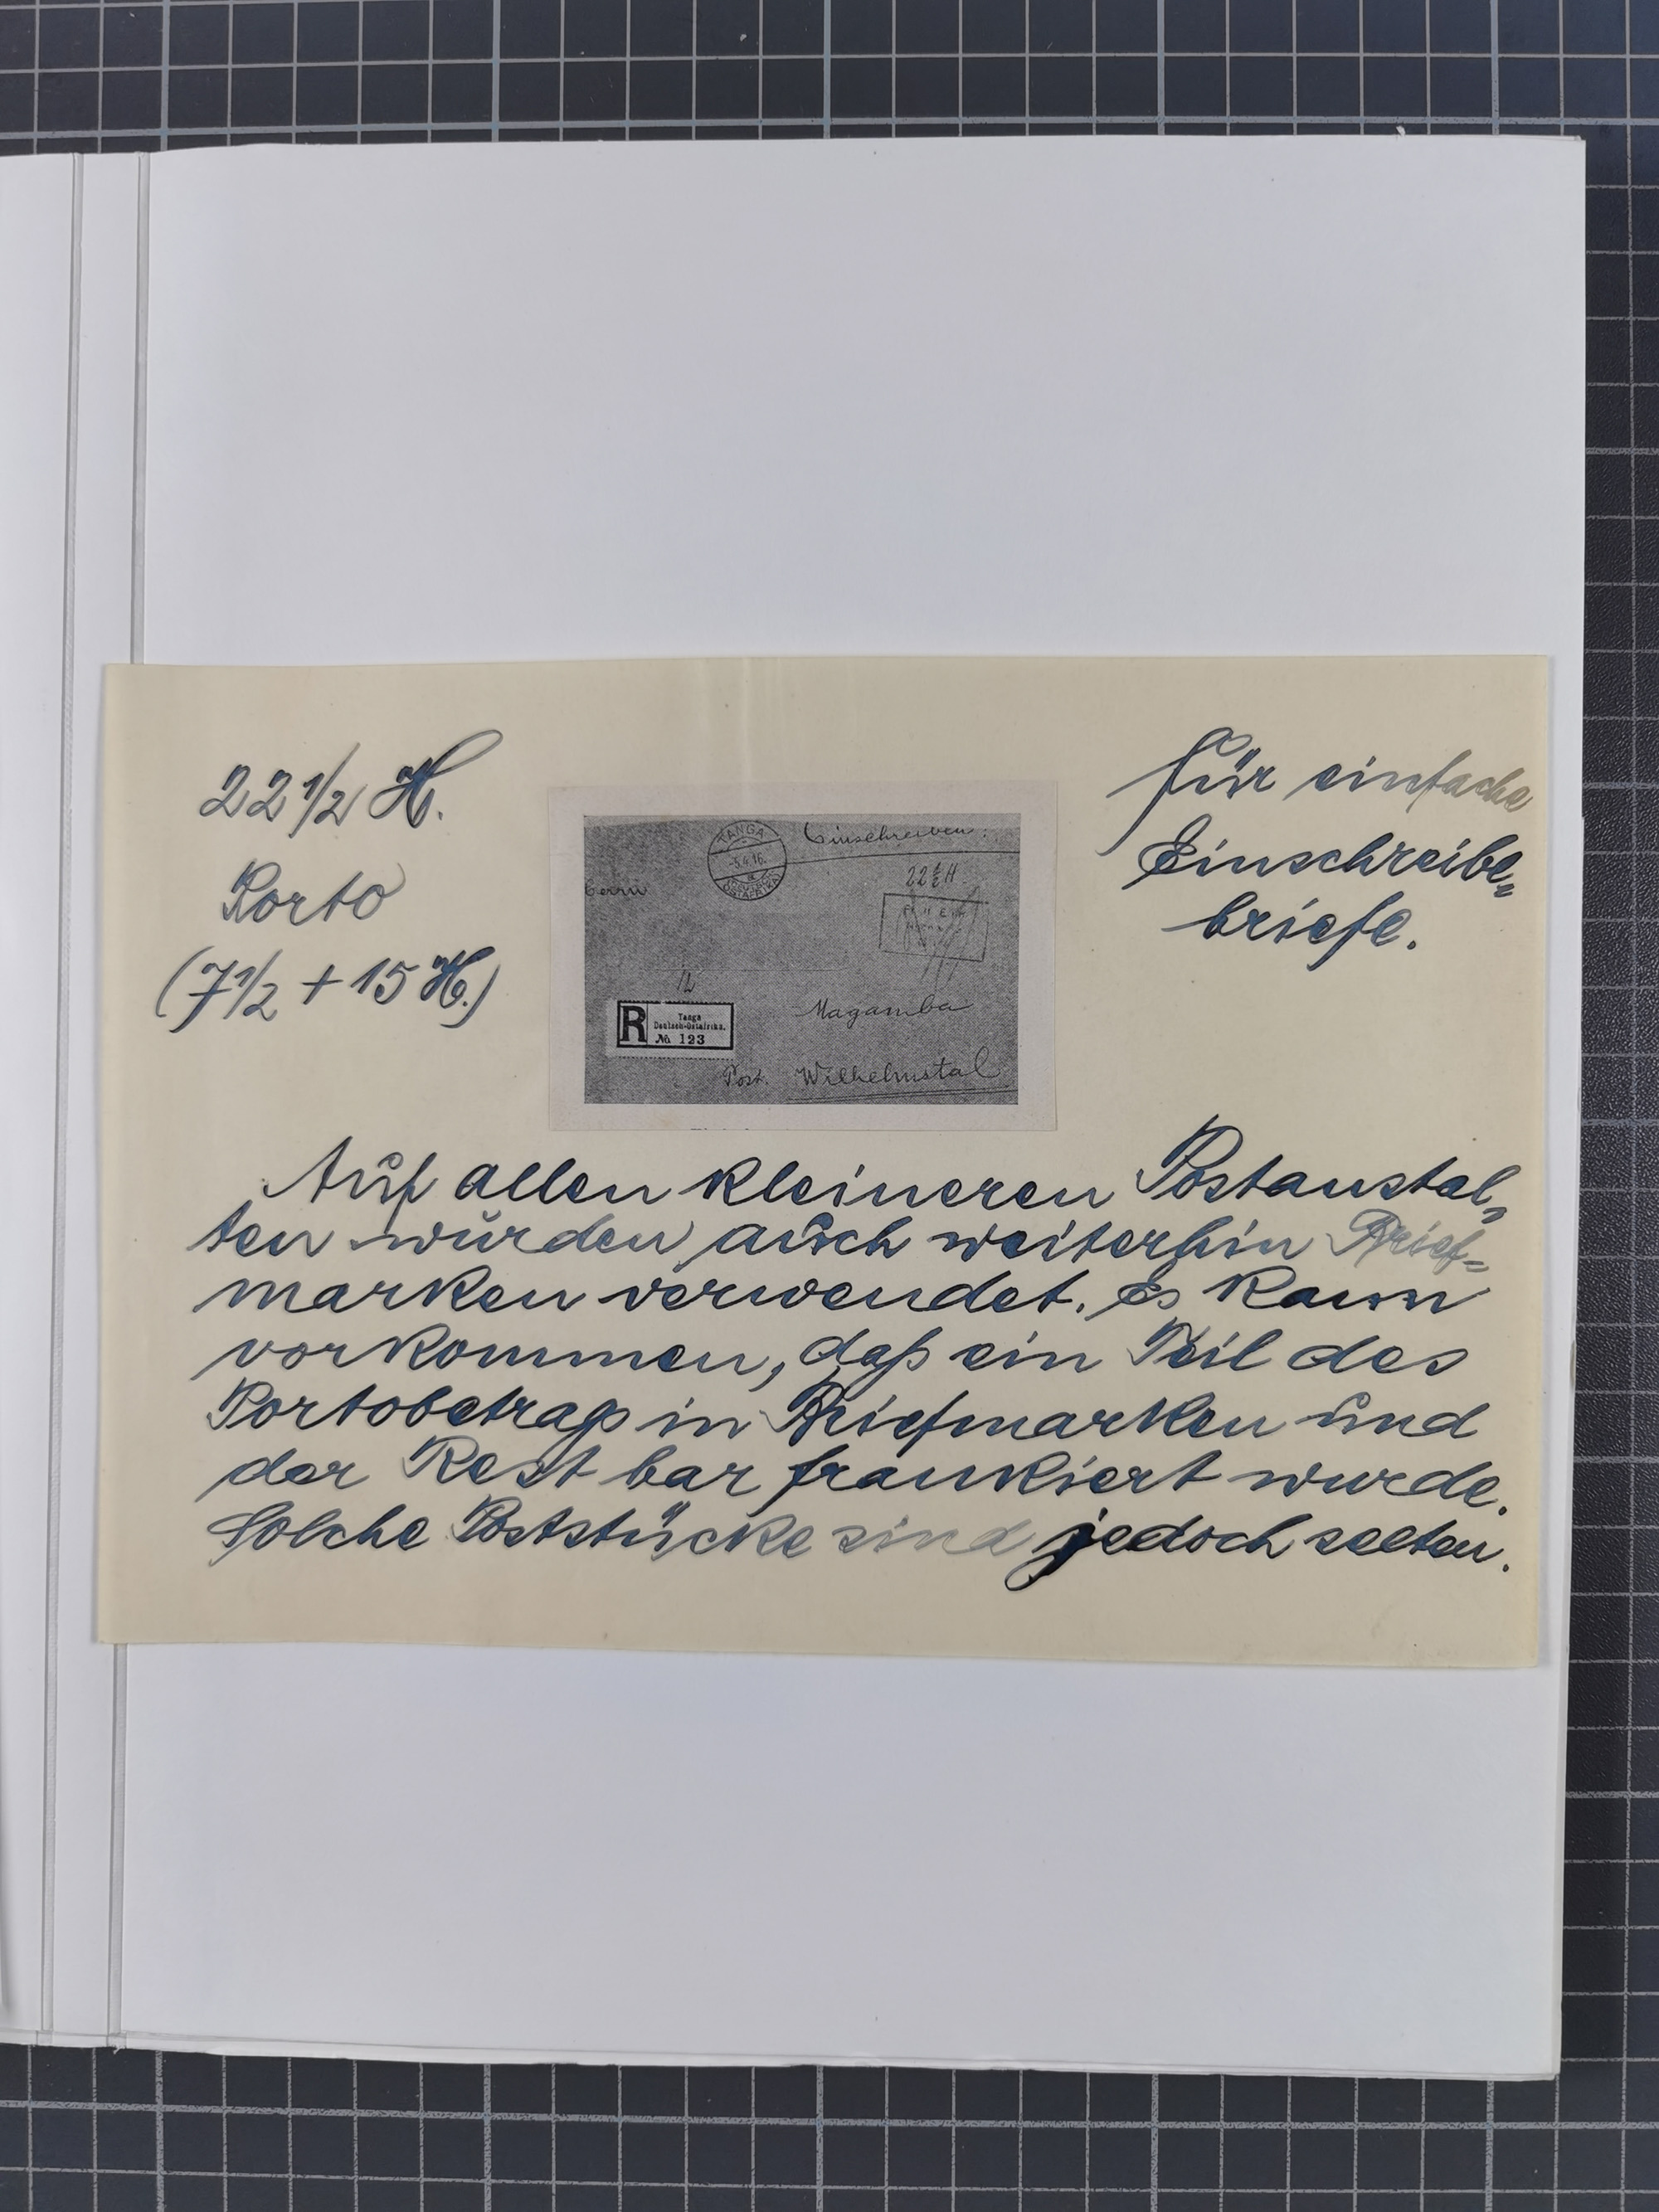 22 1/2 H.
Porto
(7 1/2 + 15 H.)
für einfache
Einschreibe=
briefe.
TANGA
5.4.16.
a
Einschreiben!
22 1/2 H
Herrn
12
R
Tanga
Deutsch-Ostafrika.
№ 123
Magamba
Post. Wilhelmstal
Auf allen kleineren Postanstal=
ten wurden auch weiterhin Brief=
marken verwendet. Es kann
vorkommen, daß ein Teil des
Portobetrags in Briefmarken und
der Rest bar frankiert wurde.
Solche Poststücke sind jedoch selten.